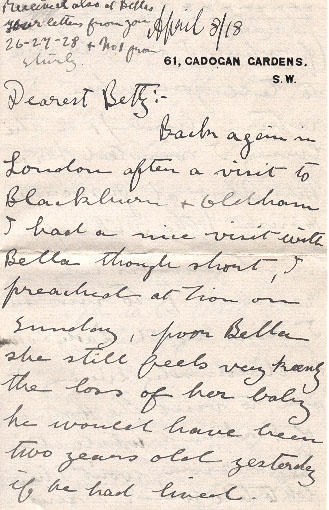 Received also at Bella's
your letters from you
26-27-28 + No 1 from
April 8/18
61, CADOGAN GARDENS.
S.W.
Dearest Betty:-
Back again in
London after a visit to
Blackburn + Oldham
I had a nice visit with
Bella though short, I
preached at Zion on
Sunday, poor Bella
she still feels very keenly
the loss of her baby
he would have been
two years old yesterday
if he had lived.